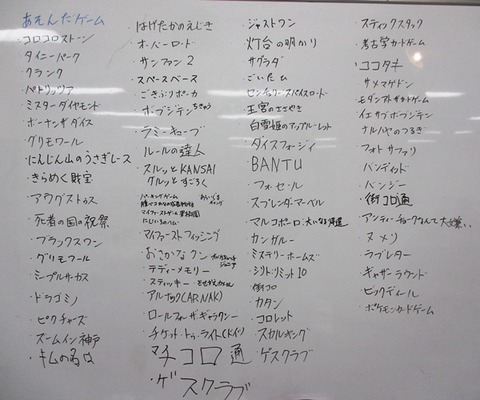 あそんだゲーム
コロコロストーン
・タイニーパーク
・クランク
・ペトリッツァ
・ミスターダイヤモンド
・ボーナンザダイス
・グリモワール
・にんじん山のうさぎレース
・きらめく財宝
・アウグストゥス
・死者の国の祝祭
・ブラックスワン
・グリモワール
・ミープルサーカス
・ドラゴミノ
・ピクチャーズ
・ズームイン神戸
・はげたかのえじき
・オーバーロード
・サンファン2
・スペースベース
・ごきぶりポーカー
・ラミーキューブ
・ルールの達人
・スルッとKANSAI
グルッとすごろく
・マイファーストフィッシング
・おさかなクン
・テディーメモリー
・スティッキー
・アルナック(ARNAK)
・ロールフォーザギャラクシー
・チケット・トゥ・ライド(ドイツ)
マチコロ通
・ゲスクラブ
・ジャストワン
・灯台の明かり
・サグラダ
・ごいた
・センチュリースパイスロード
・王宮のささやき
・白雪姫のアップルーレット
・ダイスフォージ
・BANTU
・フォーセール
・スプレンダーマーベル
・マルコポーロ2
・カンガルー
・ミステリーホームズ
・シリトリミット10
・街コロ
・カタン
・コロレット
・スカルキング
ゲスクラブ
・スティックスタック
・考古学カードゲーム
・ココタキ
・サメマゲドン
・モダンアートザカードゲーム
・イエサブボブジテン
・ナルハヤのつるぎ
・フォトサファリ
・バンディド
・バンジー
・街コロ通
・ヌメリ
・ラブレター
・ギャザーラウンド
・ビックディール
・ポケモンカードゲーム